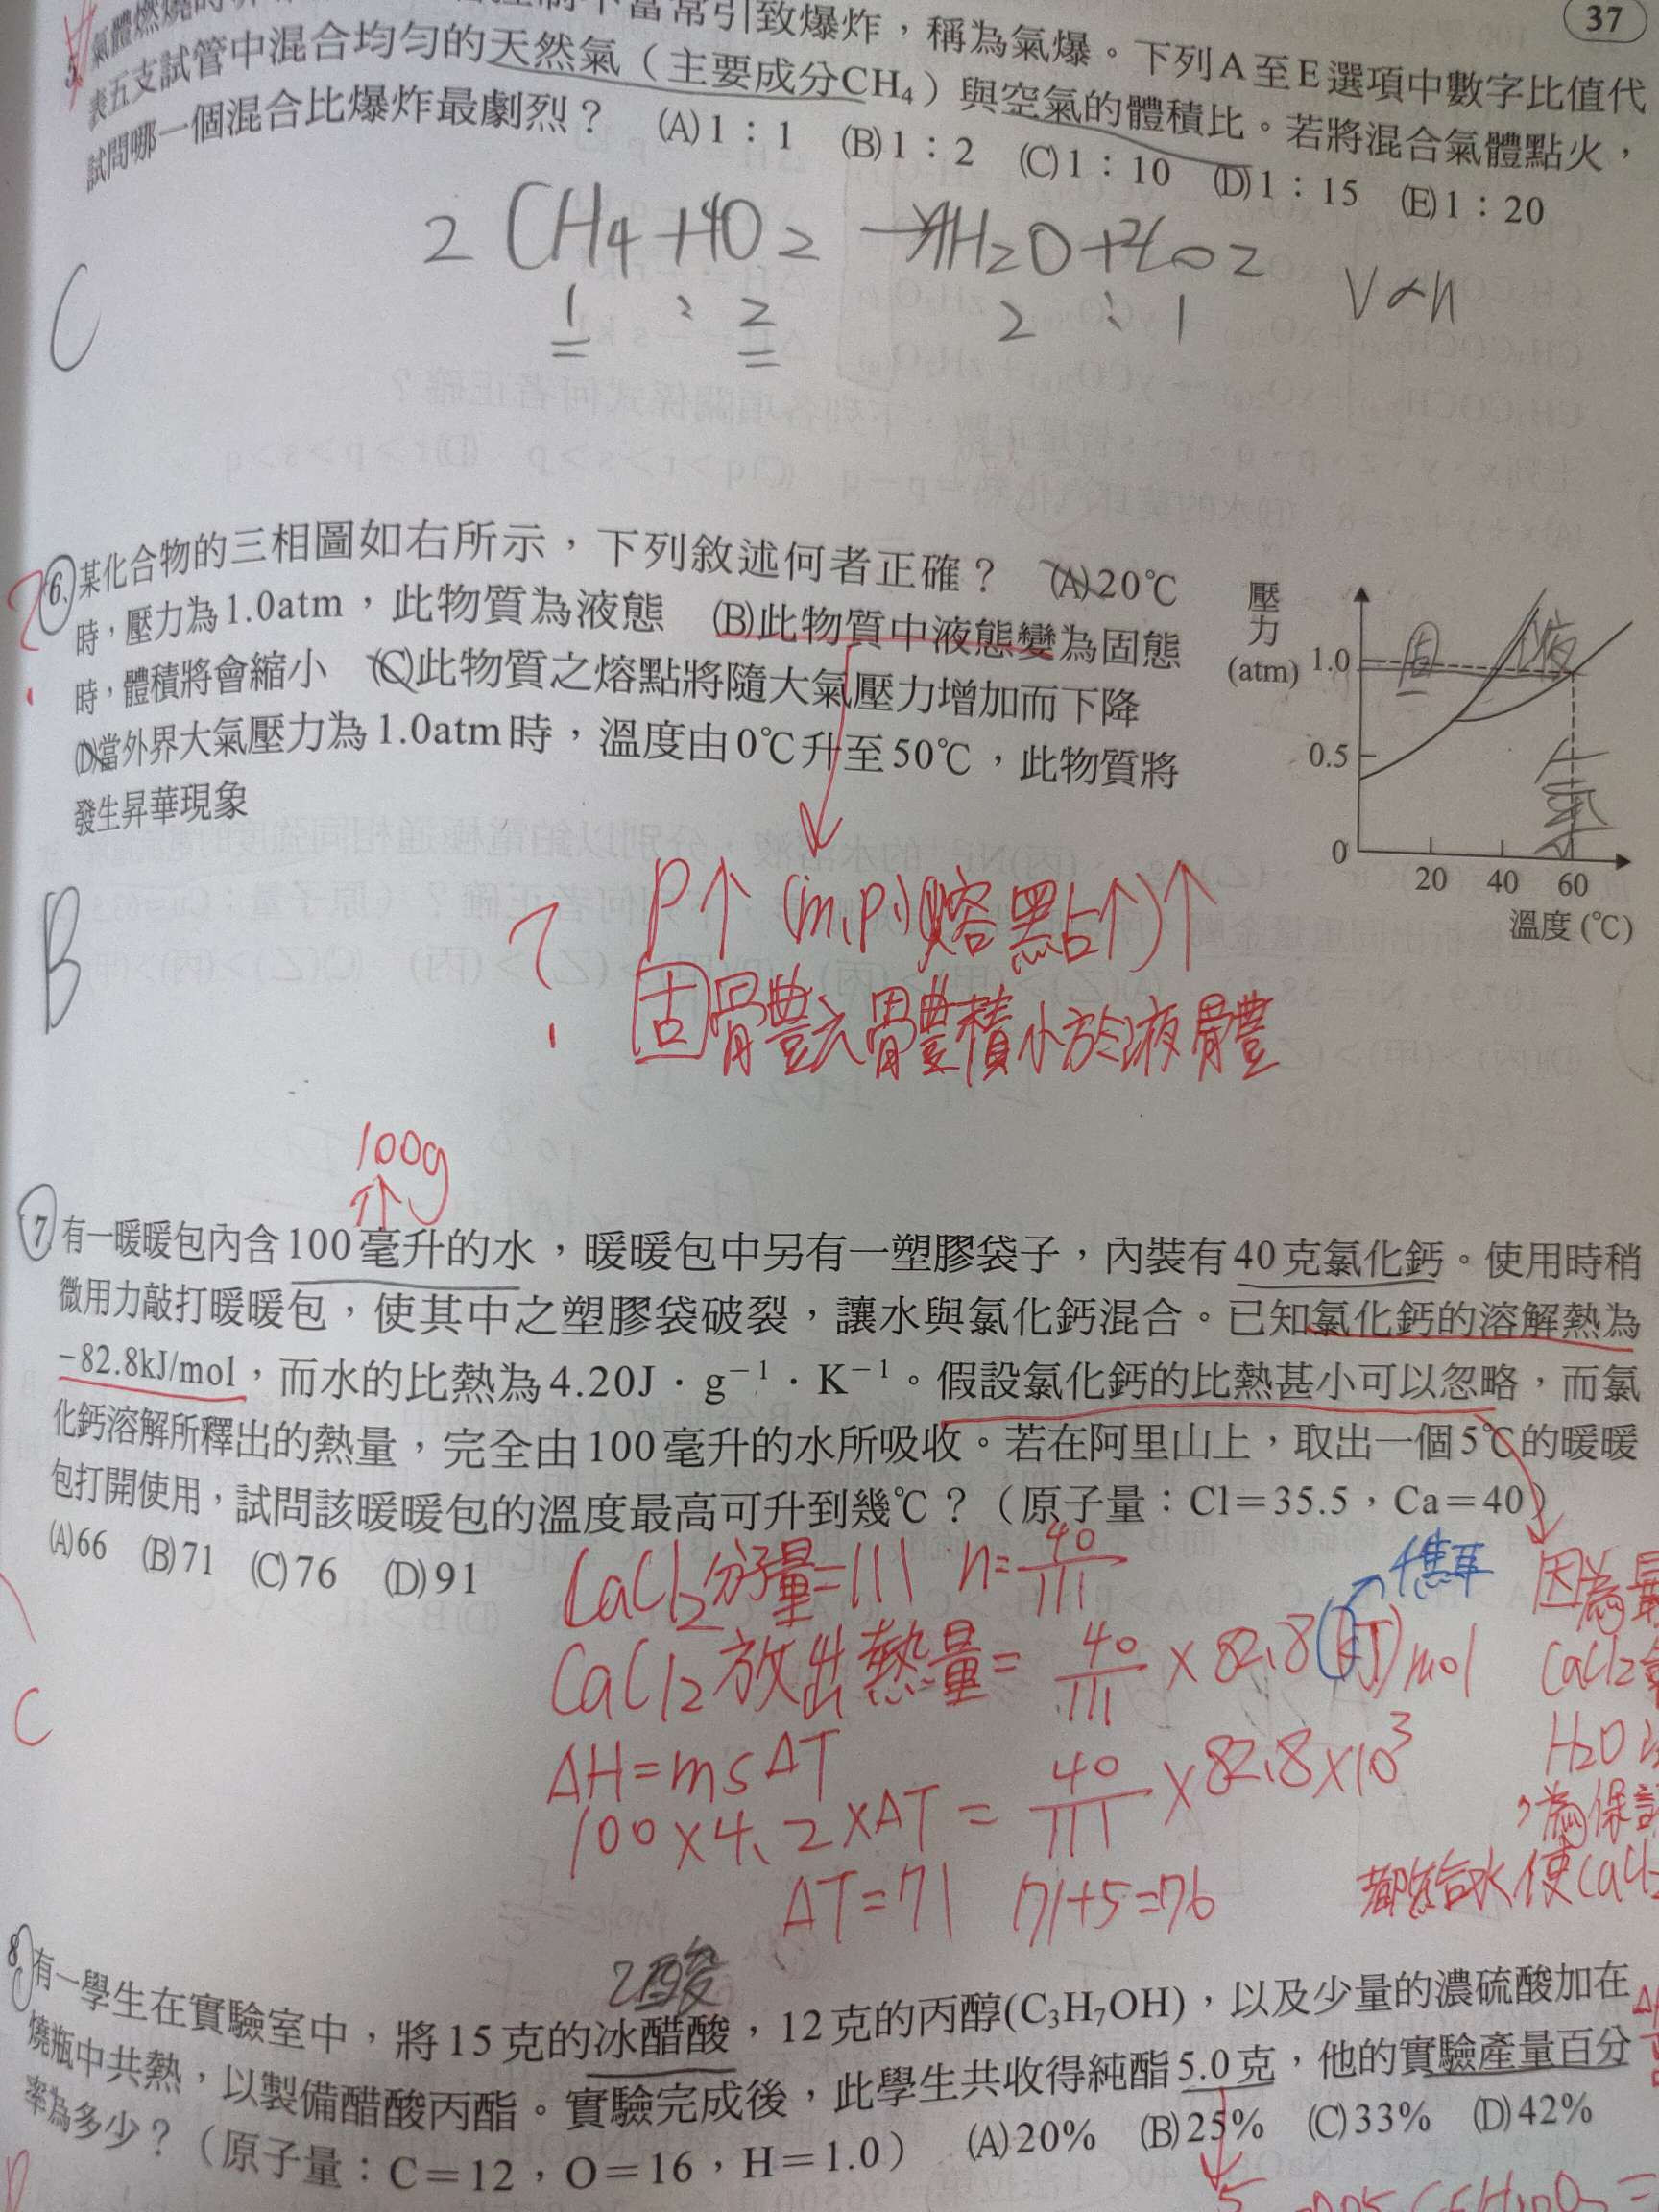 37
氣體燃燒時
不當常引致爆炸，稱為氣爆。下列A至E選項中數字比值代
5.
表五支試管中混合均勻的天然氣（主要成分CH₄）與空氣的體積比。若將混合氣體點火，
試問哪一個混合比爆炸最劇烈？ (A)1：1 (B)1：2 (C)1：10 (D)1：15 (E)1：20
C
2CH₄+4O₂→4H₂O+2CO₂
1 : 2 2 : 1 V∝n
6.某化合物的三相圖如右所示，下列敘述何者正確？ (A)20℃
時，壓力為1.0atm，此物質為液態 (B)此物質中液態變為固態
時，體積將會縮小 (C)此物質之熔點將隨大氣壓力增加而下降
(D)當外界大氣壓力為1.0atm時，溫度由0℃升至50℃，此物質將
發生昇華現象
?
壓力(atm)
1.0
0.5
0
20 40 60
溫度(℃)
固
液
氣
B
? P↑ (m,p,)(熔點↑)↑
固體之體積小於液體
100g
7 有一暖暖包內含100毫升的水，暖暖包中另有一塑膠袋子，內裝有40克氯化鈣。使用時稍
微用力敲打暖暖包，使其中之塑膠袋破裂，讓水與氯化鈣混合。已知氯化鈣的溶解熱為
−82.8kJ/mol，而水的比熱為4.20J·g⁻¹·K⁻¹。假設氯化鈣的比熱甚小可以忽略，而氯
化鈣溶解所釋出的熱量，完全由100毫升的水所吸收。若在阿里山上，取出一個5℃的暖暖
包打開使用，試問該暖暖包的溫度最高可升到幾℃？（原子量：Cl＝35.5，Ca＝40）
(A)66 (B)71 (C)76 (D)91
C
CaCl₂分子量=111 n=40/111
千焦耳
CaCl₂放出熱量=40/111×82.8(kJ)mol
ΔH=msΔT
100×4.2×ΔT=40/111×82.8×10³
ΔT=71 71+5=76
因為最
CaCl₂
H₂O
，為保
都給水使CaCl₂
乙酸
8.有一學生在實驗室中，將15克的冰醋酸，12克的丙醇(C₃H₇OH)，以及少量的濃硫酸加在
燒瓶中共熱，以製備醋酸丙酯。實驗完成後，此學生共收得純酯5.0克，他的實驗產量百分
率為多少？（原子量：C＝12，O＝16，H＝1.0） (A)20% (B)25% (C)33% (D)42%
5